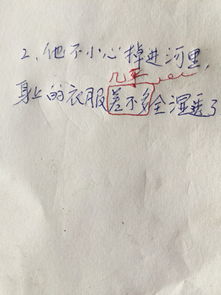 2、他不小心掉进河里,
几乎
身上的衣服差不多全湿透了